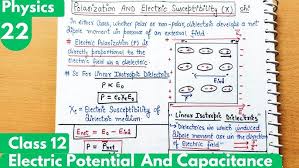 Physics
22
Polarization AND Electric Susceptibility (X) chi
In either case, whether polar or non-polar, dielectrics develope a net
dipole moment in presence of an external field.
* Electric Polarization (P) is
directly proportional to the
Electric field in a dielectric
* So For Linear Isotropic Dielectrics
P ∝ E
P = ε₀ Xₑ E
Xₑ = Electric Susceptibility of
dielectric medium.
Enet = E₀ - Eind
Linear Isotropic Dielectrics
Dielectrics in which induced
dipole moment are in the
direction of
Class 12
Electric Potential And Capacitance